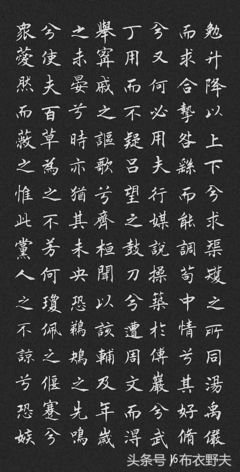 勉升降以上下兮求渠矱之所同湯禹儼
而求合摯咎繇而能調苟中情兮其好脩
兮又何必用夫行媒說操築於傅巖兮武
丁用而不疑呂望之鼓刀兮遭周文而得
舉甯戚之謳歌兮齊桓聞以該輔及年歲
之未晏兮時亦猶其未央恐鵜鴂之先鳴
兮使夫百草為之不芳何瓊佩之偃蹇兮
眾薆然而蔽之惟此黨人之不諒兮恐嫉
头条号/布衣野夫